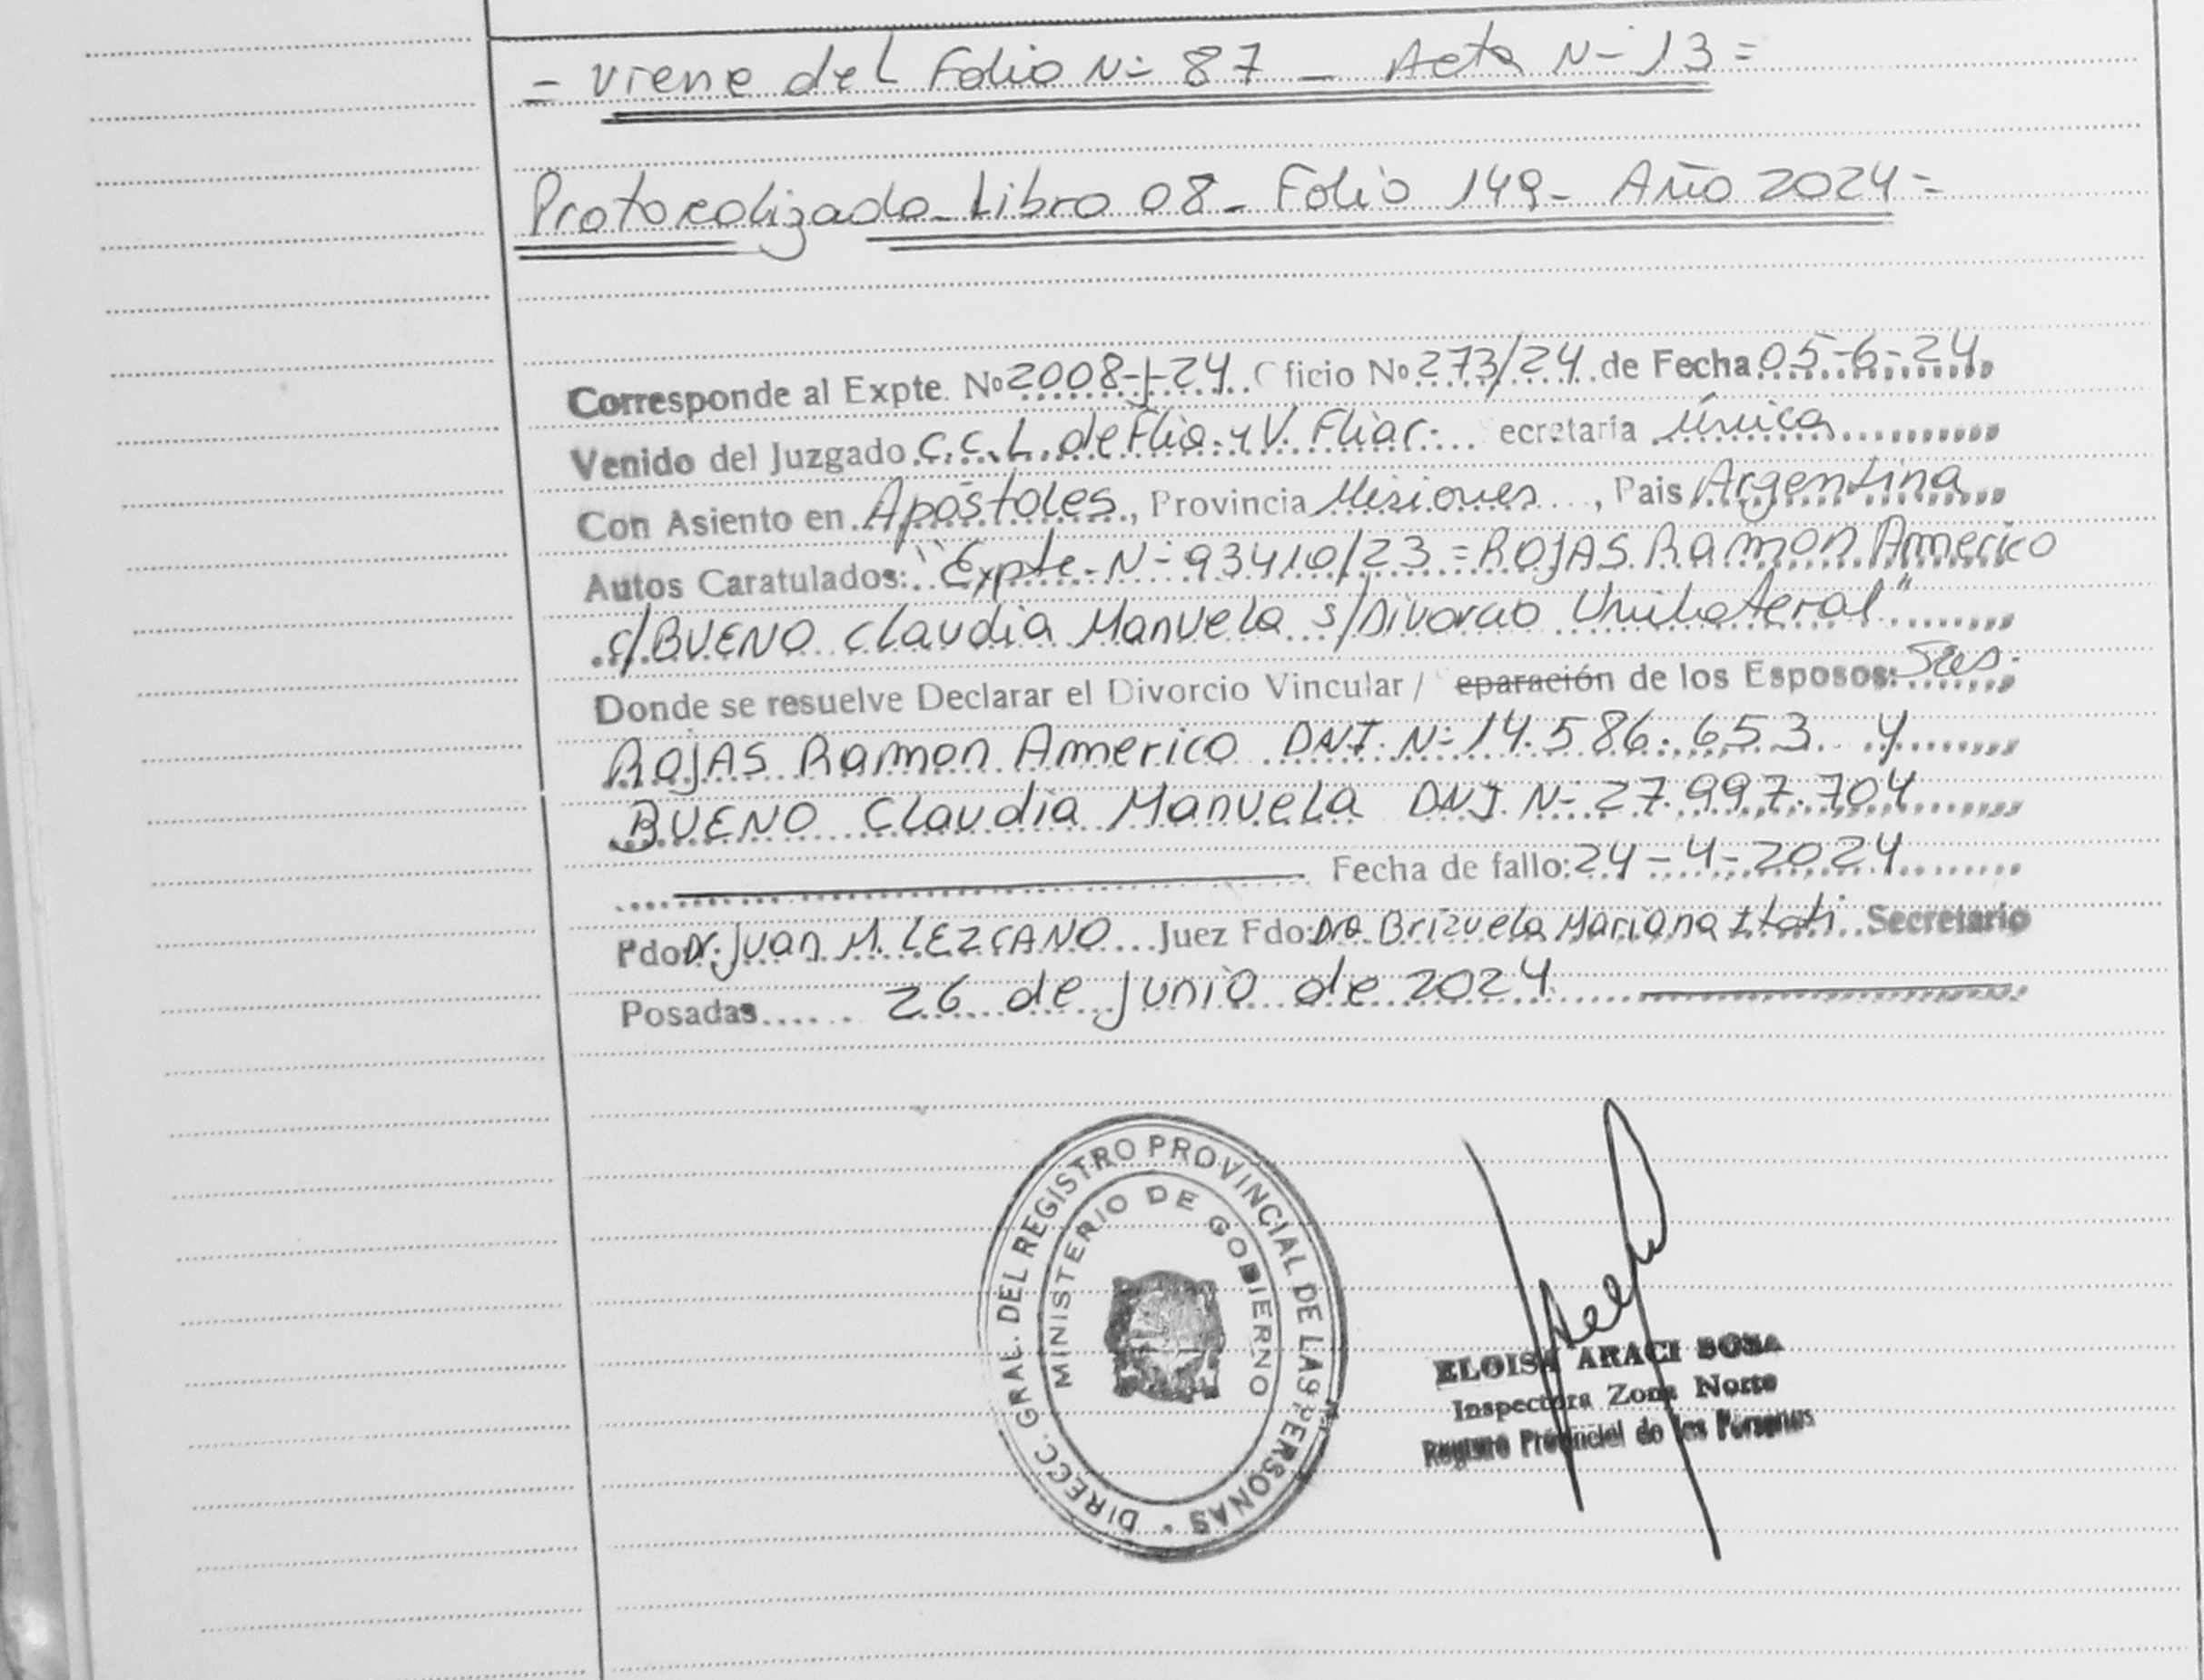 = viene del Folio N- 87 - Acta N- 13 =
Protocolizado - Libro 08 - Folio 149 - Año 2024 =
Corresponde al Expte. Nº 2008-J-24 Oficio Nº 273/24 de Fecha 05-6-24
Venido del Juzgado C.C.L. de Flia. y V. Fliar. Secretaria Única
Con Asiento en Apóstoles, Provincia Misiones, Pais Argentina
Autos Caratulados: "Expte. N- 93410/23 = ROJAS Ramon Americo
c/ BUENO Claudia Manuela s/ Divorcio Unilateral"
Donde se resuelve Declarar el Divorcio Vincular / Separación de los Esposos: Sres.
ROJAS Ramon Americo DNI. N- 14.586.653 y
BUENO Claudia Manuela DNI. N- 27.997.704
Fecha de fallo: 24-4-2024
Fdo: Dr. Juan M. LEZCANO Juez Fdo: Dra Brizuela Mariana Itati Secretario
Posadas 26 de Junio de 2024
DIRECC. GRAL. DEL REGISTRO PROVINCIAL DE LAS PERSONAS
MINISTERIO DE GOBIERNO
ELOISA ARACI
Inspectora Zona Norte
Registro Provincial de las Personas